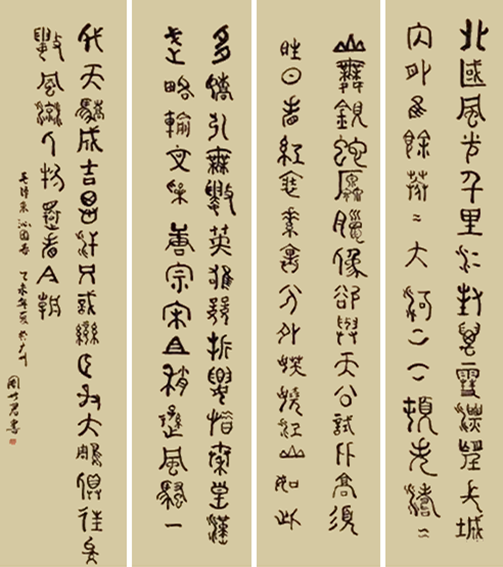 北國風光千里冰封萬雪飄望長城
內外惟餘莽〻大河上下頓失滔〻
山舞銀蛇原臘像欲與天公試比高須
晴日看紅裝素裹分外妖嬈江山如此
多嬌引無數英雄競折腰惜秦皇漢
武略輸文采唐宗宋祖稍遜風騷一
代天驕成吉思汗只識彎弓射大雕俱往矣
數風流人物還看今朝
毛澤東 沁園春 乙未年夏於